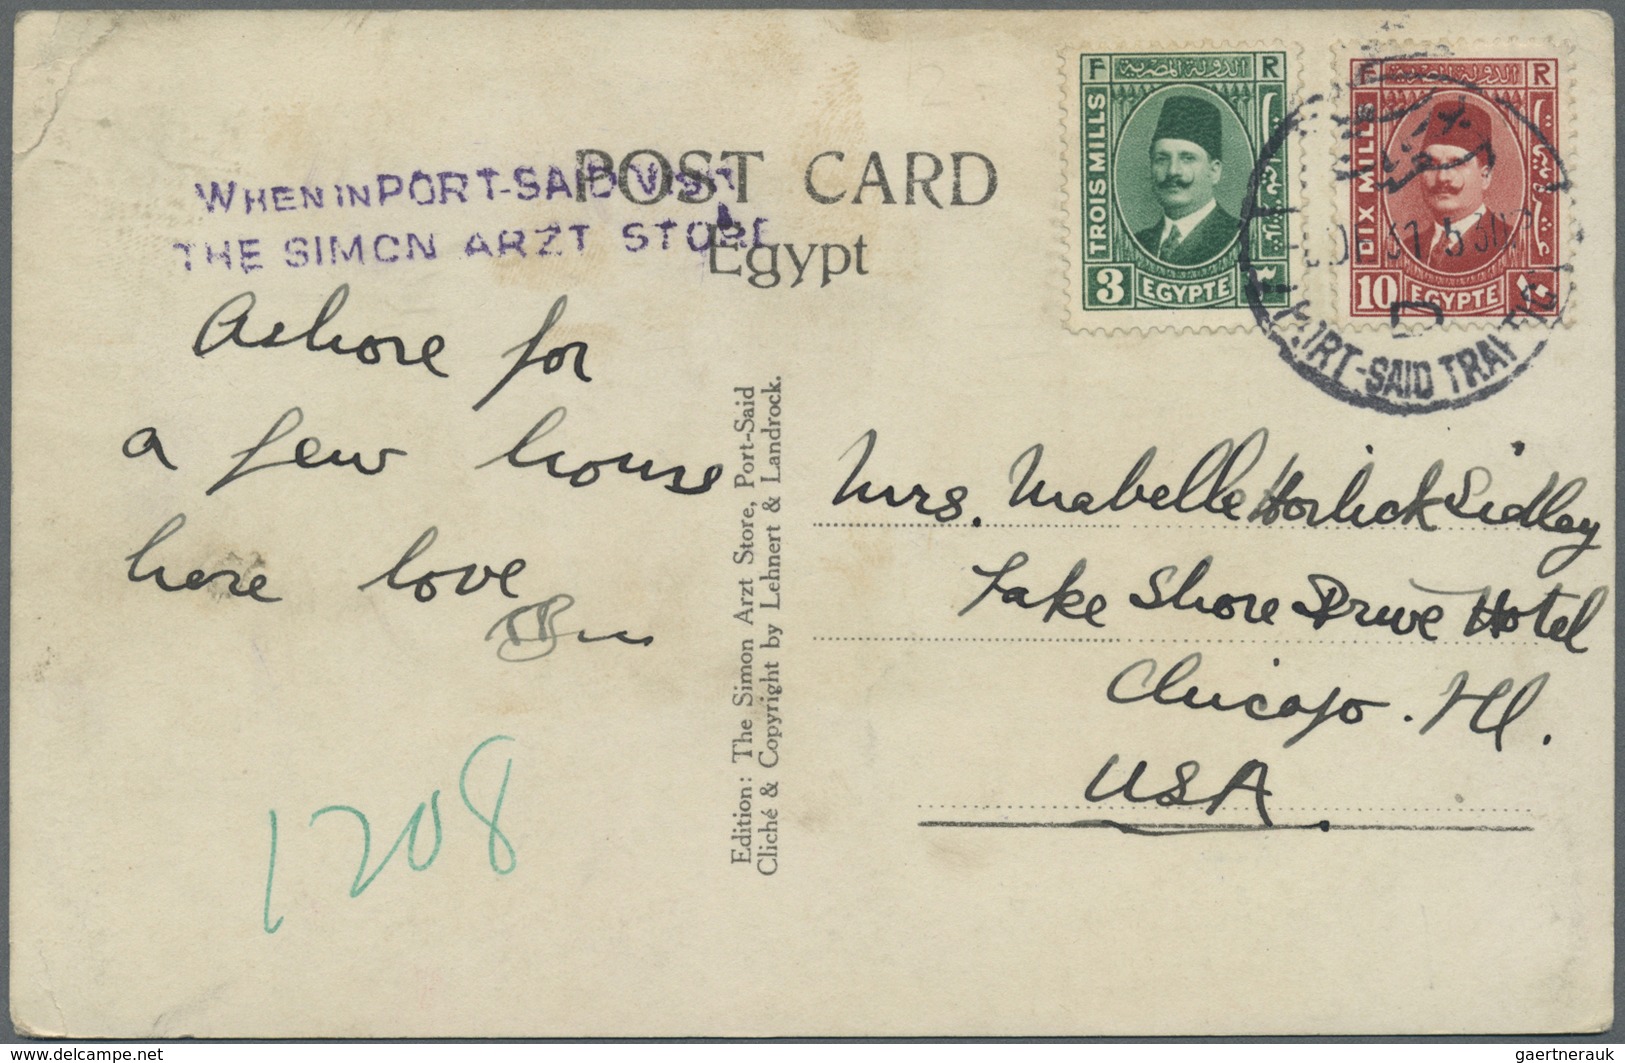 POST CARD
Egypt
WHEN IN PORT-SAID VISIT
THE SIMON ARZT STORE
Ashore for
a few hours
here love
1208
Edition: The Simon Arzt Store, Port-Said
Cliché & Copyright by Lehnert & Landrock.
F الدولة المصرية R
TROIS MILLS
3 EGYPTE ٣
F الدولة المصرية R
DIX MILLS
10 EGYPTE ١٠
بورسعيد
DE 31 5 30P
PORT-SAID TRAFFIC
Mrs. Mabelle Horlick Sidley
Lake Shore Drive Hotel
Chicago. Ill.
USA.
www.delcampe.net
gaertnerauk